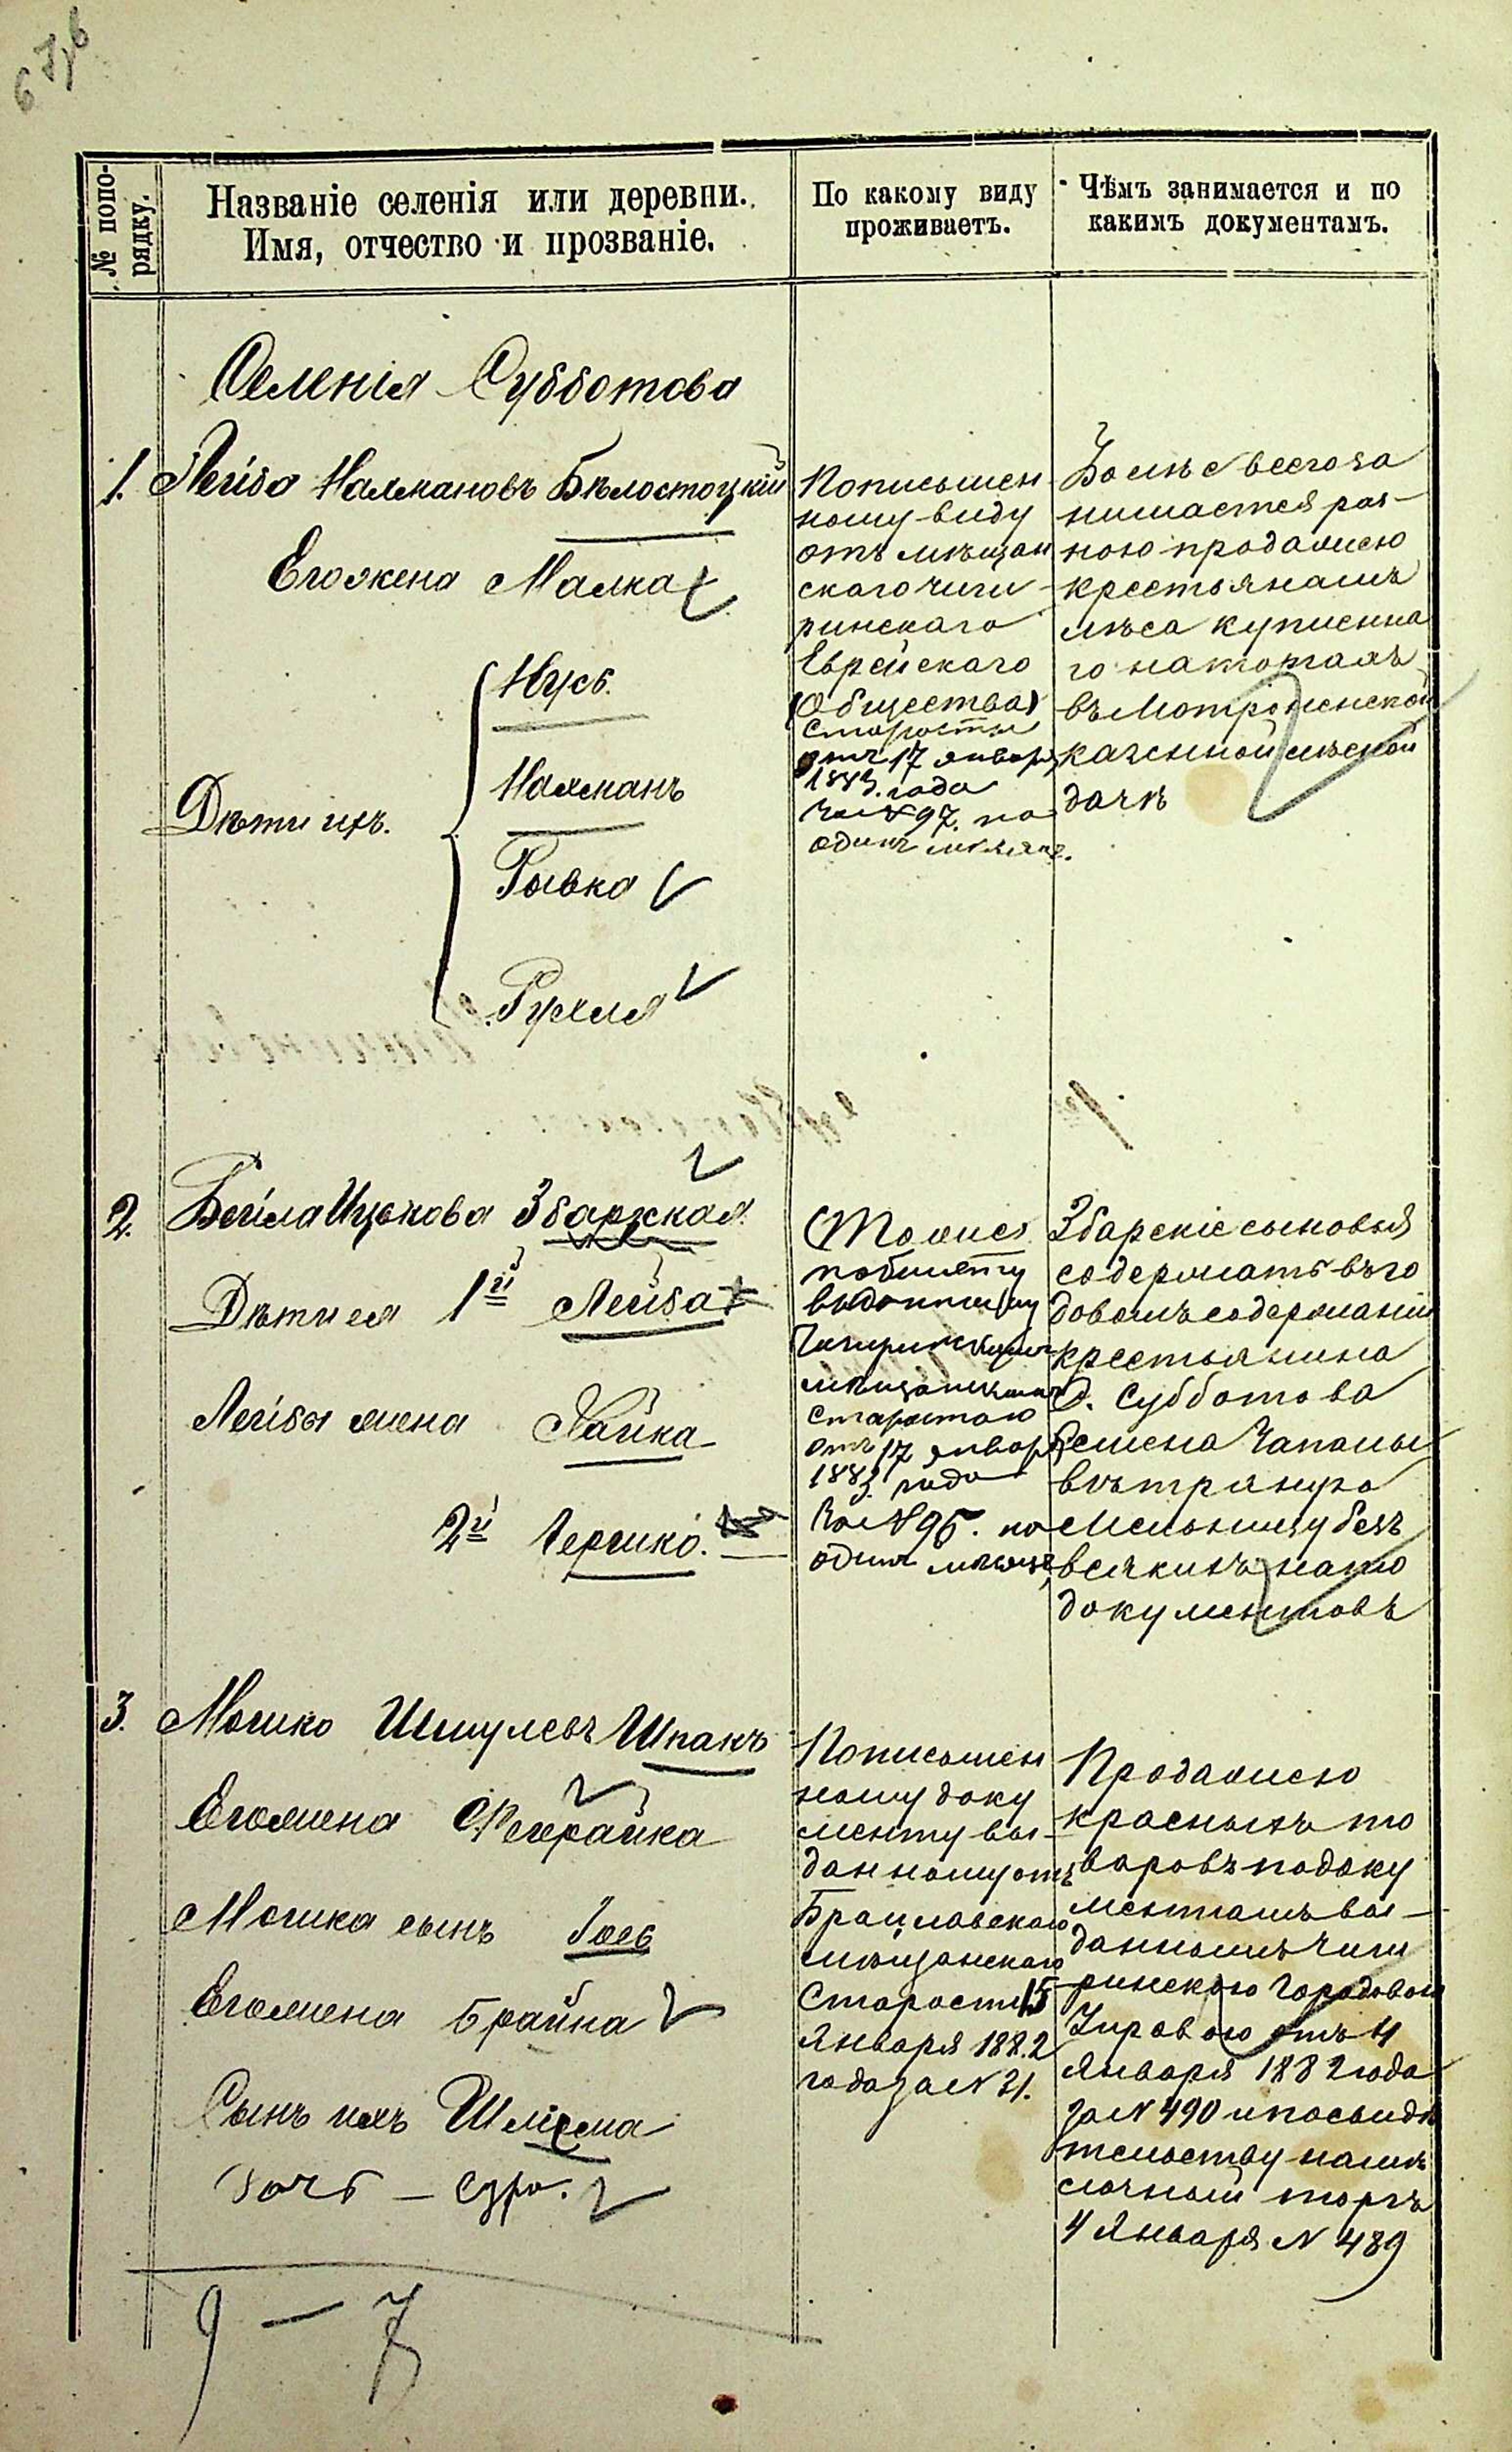 № попо-
рядку.
Названіе селенія или деревни.
Имя, отчество и прозваніе.
По какому виду
проживаетъ.
Чѣмъ занимается и по
какимъ документамъ.
Селенія Субботова
1. Лейба Нахмановъ Бѣлостоцкій
Его жена Малка
Дѣти ихъ.
Нусь.
Нахманъ
Рывка
Рухля
По письмен
ному виду
отъ мѣщан
скаго чиги
ринскаго
Еврейскаго
Общества
Старосты
отъ 17 января
1883. года
за № 97. на
одинъ мѣсяцъ.
Болѣе всего за
нимается раз-
ною продажею
крестьянамъ
лѣса купленна
го на торгахъ
въ Мотроненской
казенной лѣсной
дачѣ
2. Бейла Ицькова Збаржская
Дѣти ея 1й Лейба
Лейбы жена Хайка
2й Гершко.
Тоже
по билету
выданному
Чигиринскимъ
мѣщанскимъ
старостою
отъ 17 января
1883. года
за № 95. на
одинъ мѣсяцъ
Збарскіе сыновья
содержатъ въ го
довомъ содержаніи
крестьянина
с. Субботова
Семена Чапалы
вѣтряную
мельницу безъ
всякихъ на то
документовъ
3. Мошко Шмулевъ Шпакъ
Его жена Фейрайка
Мошка сынъ Іось
Его жена Брайна
Сынъ ихъ Шлема
дочь — Сура.
По письмен
ному доку
менту вы-
данному отъ
Брацлавскаго
мѣщанскаго
Старосты 15
Января 1882
года за № 21.
Продажею
красныхъ то
варовъ по доку
ментамъ вы-
даннымъ Чиги
ринскою Городовою
Управою отъ 4
Января 1882 года
за № 490 и по свидѣ
тельству на мѣ
лочный торгъ
4 Января № 489
9 — 7